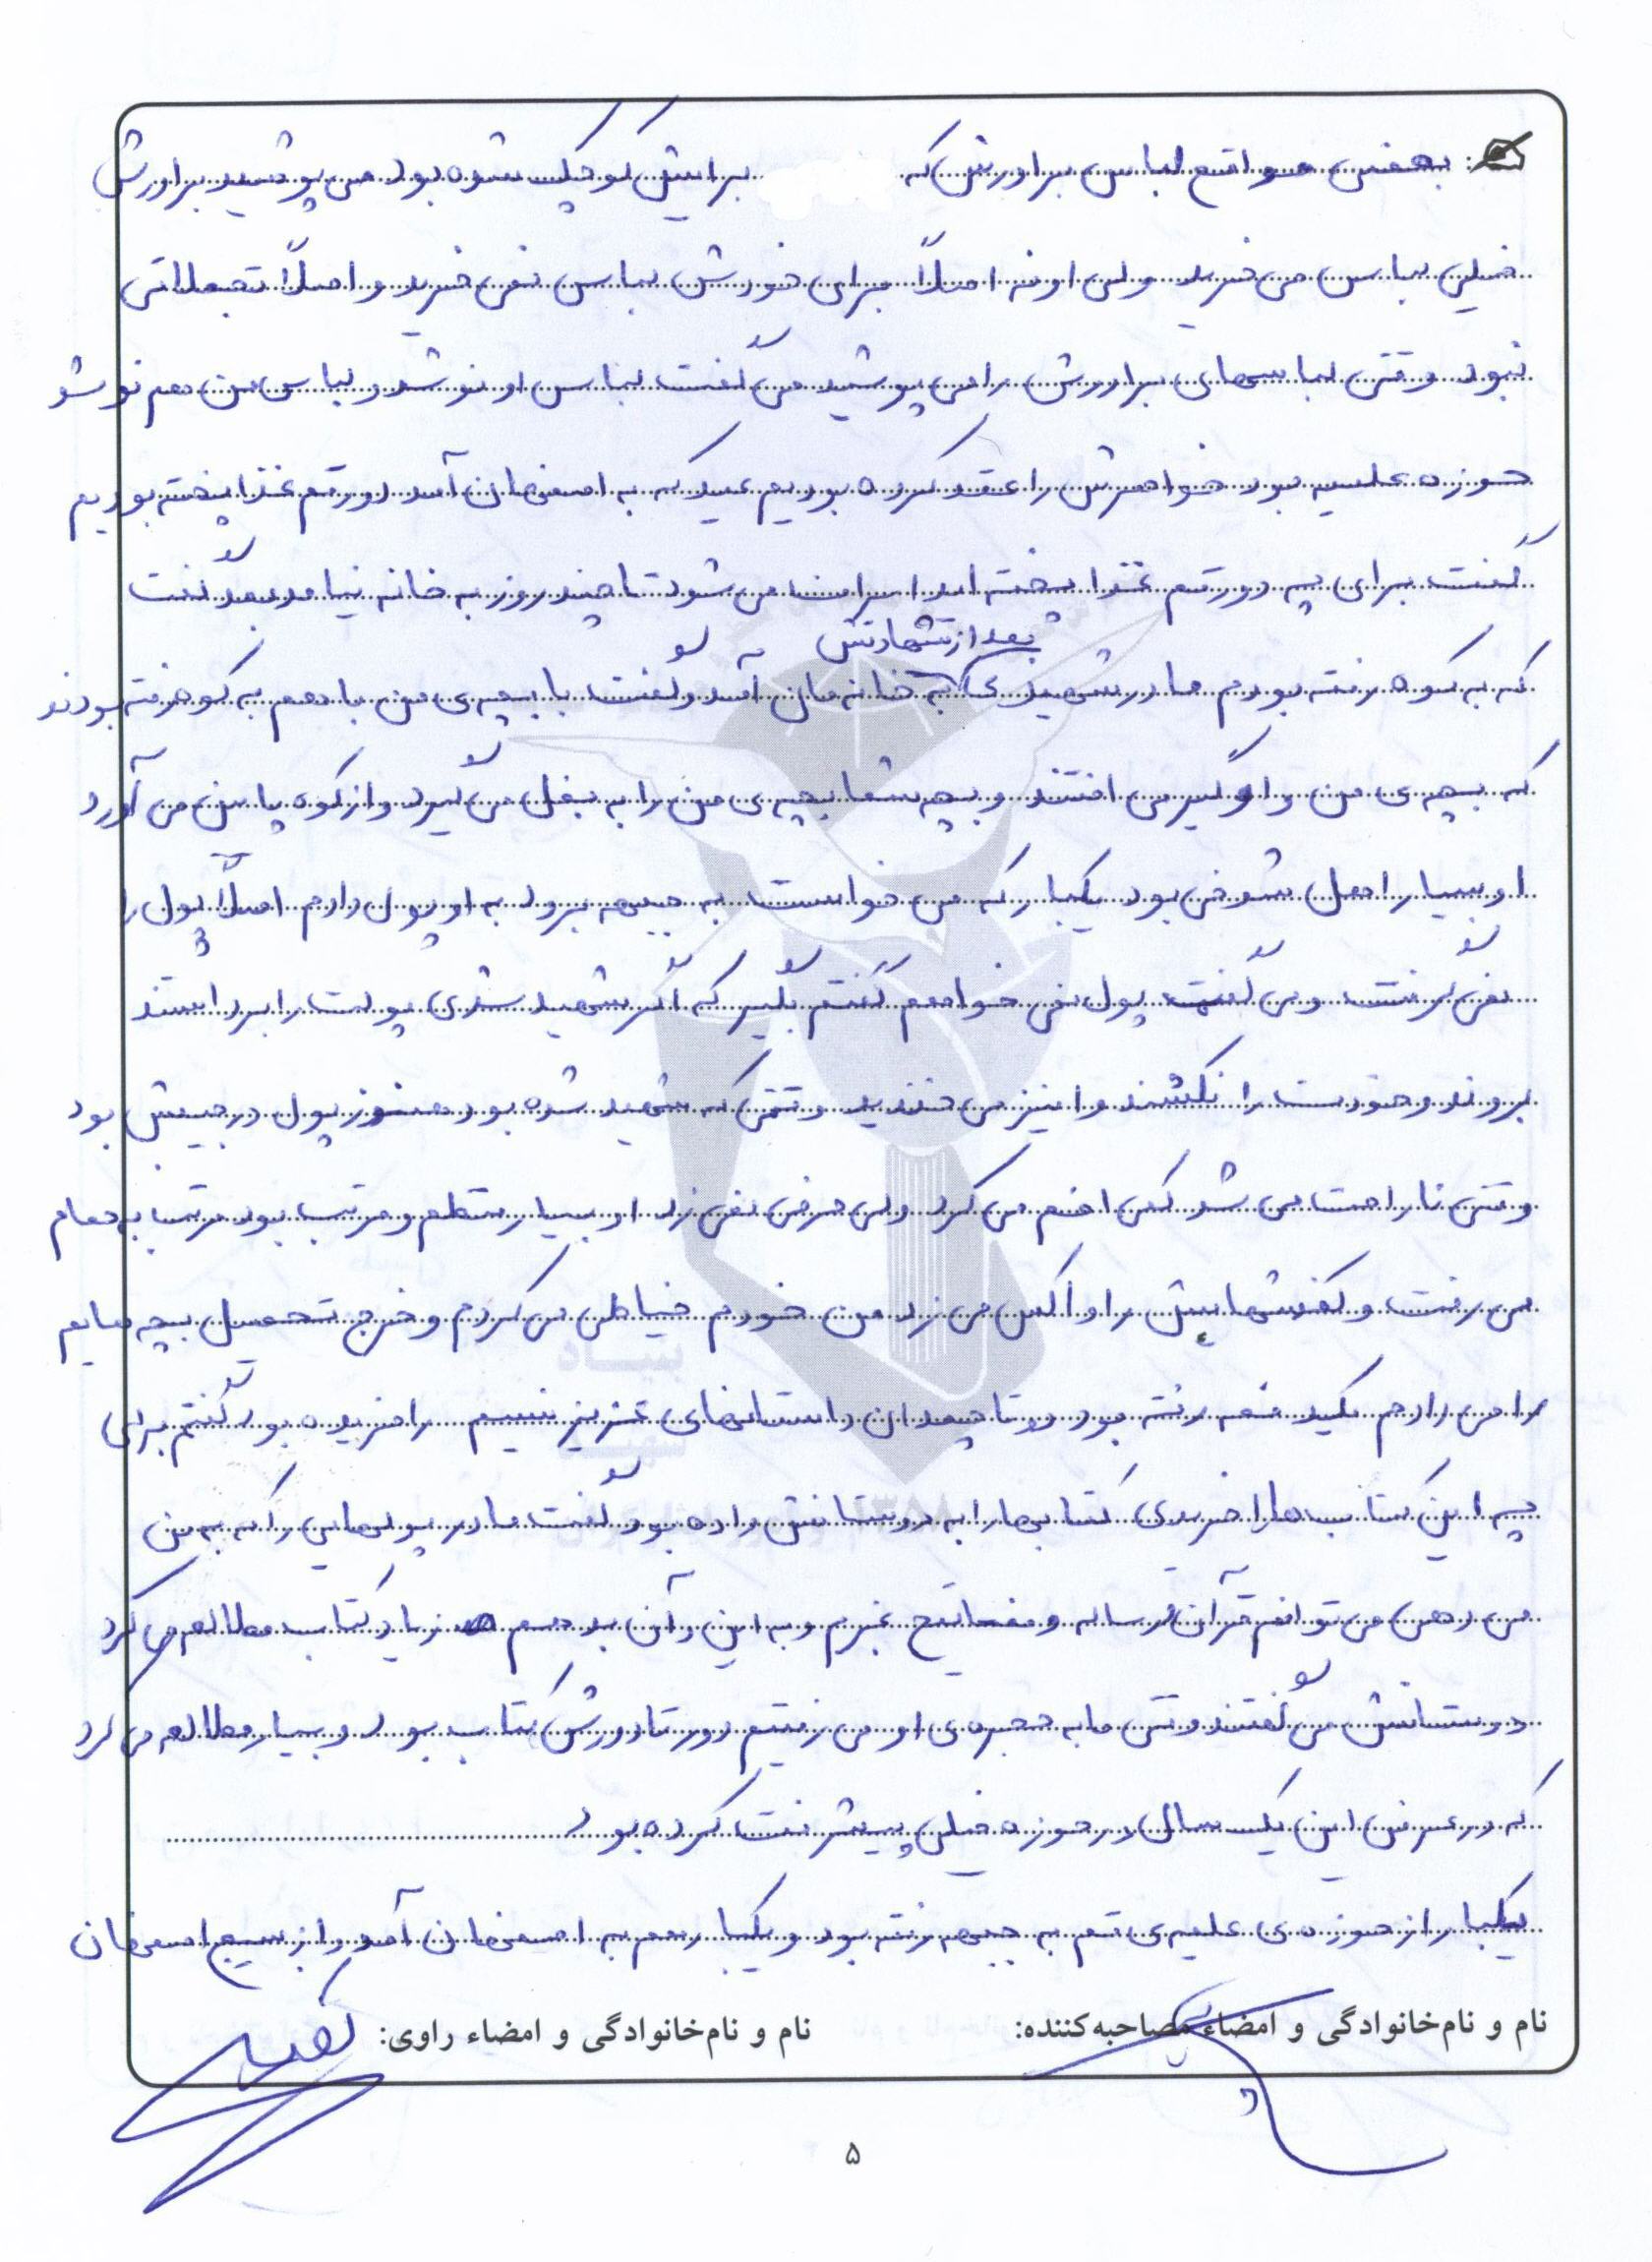 بعضی مواقع لباس برادرش که برایش کوچک شده بود می پوشید برادرش
خیلی لباس می خرید ولی او نه اصلاً برای خودش لباس نمی خرید و اصلاً تجملاتی
نبود وقتی لباسهای برادرش را می پوشید می گفت لباس او نو شد و لباس من هم نو شد
حوزه علمیه بود خواهرش را عقد کرده بودیم عید که به اصفهان آمد دو رقم غذا پخته بودیم
گفت برای چه دو رقم غذا پخته اید اسراف می شود تا چند روز به خانه نیامد بعد گفت
بعد از شهادتش
که به کوه رفته بودم مادر شهیدی به خانه مان آمد و گفت با بچه ی من باهم به کوه رفته بودند
که بچه ی من واگیر می افتند و بچه شما بچه ی من را به بغل می گیرد و از کوه پایین می آورد
او بسیار اهل شوخی بود یکبار که می خواست به جبهه برود به او پول دادم اصلاً پول را
نمی گرفت و می گفت پول نمی خواهم گفتم بگیر که اگر شهید شدی پولت را بردارند
بروند و خودت را نکشند و او نیز می خندید وقتی که شهید شده بود هنوز پول در جیبش بود
وقتی ناراحت می شد کمی اخم می کرد ولی حرفی نمی زد او بسیار منظم و مرتب بود مرتب به حمام
می رفت و کفشهایش را واکس می زد من خودم خیاطی می کردم و خرج تحصیل بچه هایم
را می دادم یکدفعه رفته بود دو تا چمدان داستانهای عزیز نسیم را خریده بود گفتم برای
چه این کتاب ها را خریدی کتابها را به دوستانش داده بود گفت مادر پولهایی را که به من
می دهی می توانم قرآن و رساله و مفاتیح بخرم و به این و آن بدهم زیاد کتاب مطالعه می کرد
دوستانش می گفتند وقتی ما به حجره ی او می رفتیم دور تا دورش کتاب بود و بسیار مطالعه می کرد
که در عرض این یک سال در حوزه خیلی پیشرفت کرده بود
یکبار از حوزه ی علمیه ی قم به جبهه رفته بود و یکبار هم به اصفهان آمد و از بسیج اصفهان
نام و نام‌خانوادگی و امضاء مصاحبه‌کننده: نام و نام‌خانوادگی و امضاء راوی:
۵